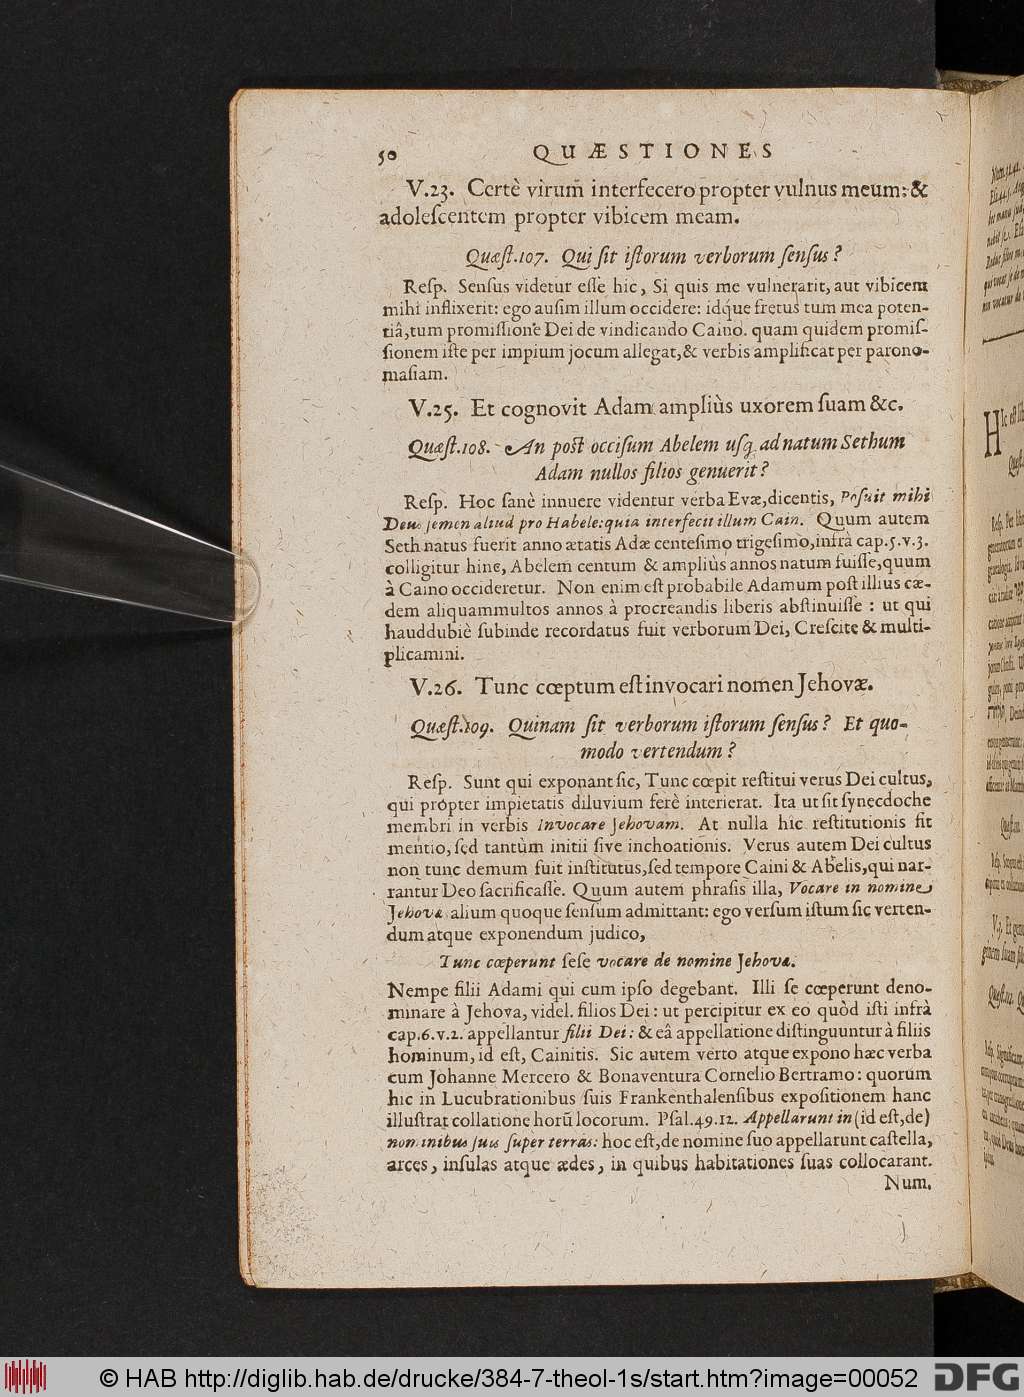 50 QUÆSTIONES
V.23. Certè virum̃ interfecero propter vulnus meum: &
adoleſcentem propter vibicem meam.
Quæſt.107. Qui ſit iſtorum verborum ſenſus?
Reſp. Senſus videtur eſſe hic, Si quis me vulnerarit, aut vibicem
mihi inflixerit: ego auſim illum occidere: idq́ue fretus tum mea poten-
tiâ, tum promiſſione Dei de vindicando Caino. quam quidem promiſ-
ſionem iſte per impium jocum allegat, & verbis amplificat per parono-
maſiam.
V.25. Et cognovit Adam ampliùs uxorem ſuam &c.
Quæſt.108. An poſt occiſum Abelem uſq; ad natum Sethum
Adam nullos filios genuerit?
Reſp. Hoc ſanè innuere videntur verba Evæ, dicentis, Poſuit mihi
Deus ſemen aliud pro Habele: quia interfecit illum Cain. Quum autem
Seth natus fuerit anno ætatis Adæ centeſimo trigeſimo, infrà cap.5.v.3.
colligitur hinc, Abelem centum & ampliùs annos natum fuiſſe, quum
à Caino occideretur. Non enim eſt probabile Adamum poſt illius cæ-
dem aliquammultos annos à procreandis liberis abſtinuiſſe : ut qui
hauddubiè ſubinde recordatus fuit verborum Dei, Creſcite & multi-
plicamini.
V.26. Tunc cœptum eſt invocari nomen Jehovæ.
Quæſt.109. Quinam ſit verborum iſtorum ſenſus? Et quo-
modo vertendum?
Reſp. Sunt qui exponant ſic, Tunc cœpit reſtitui verus Dei cultus,
qui propter impietatis diluvium ferè interierat. Ita ut ſit ſynecdoche
membri in verbis Invocare Jehovam. At nulla hic reſtitutionis fit
mentio, ſed tantùm initii ſive inchoationis. Verus autem Dei cultus
non tunc demum fuit inſtitutus, ſed tempore Caini & Abelis, qui nar-
rantur Deo ſacrificaſſe. Quum autem phraſis illa, Vocare in nomine
Jehova alium quoque ſenſum admittant: ego verſum iſtum ſic verten-
dum atque exponendum judico,
Tunc cœperunt ſeſe vocare de nomine Jehova.
Nempe filii Adami qui cum ipſo degebant. Illi ſe cœperunt deno-
minare à Jehova, videl. filios Dei : ut percipitur ex eo quòd iſti infrà
cap.6.v.2. appellantur filii Dei: & eâ appellatione diſtinguuntur à filiis
hominum, id eſt, Cainitis. Sic autem verto atque expono hæc verba
cum Johanne Mercero & Bonaventura Cornelio Bertramo: quorum
hic in Lucubrationibus ſuis Frankenthalenſibus expoſitionem hanc
illuſtrat collatione horũ locorum. Pſal.49.12. Appellarunt in (id eſt, de)
nominibus ſuis ſuper terras: hoc eſt, de nomine ſuo appellarunt caſtella,
arces, inſulas atque ædes, in quibus habitationes ſuas collocarant.
Num.
© HAB http://diglib.hab.de/drucke/384-7-theol-1s/start.htm?image=00052 DFG